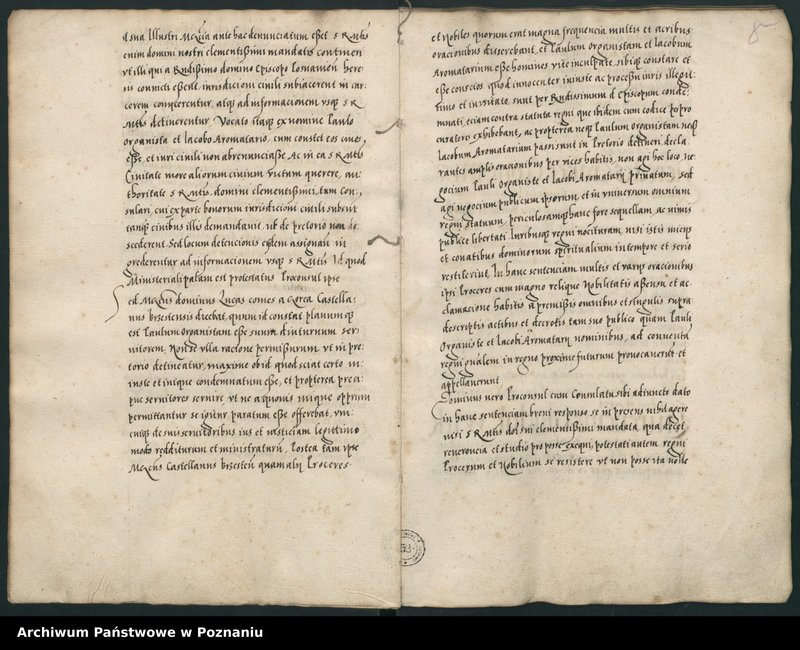 d sua Illustri Mcia ante hac denunciatum esset s R Mtis
enim domini nostri clementissimi mandatis contineri
vt illi qui a Rndissimo domino Episcopo Posnanien here
sis convicti essent, iurisdicioni civili subiacerent in car
cerem conijcerentur, atqz ad informacionem vsqz s R
Mtis detinerentur. Vocato itaqz ex nomine Paulo
organista et Iacobo Aromatario, cum constet eos cives
esse, et iuri civili non abrenunciasse Ac in ea s R Mtis
Civitate more aliorum civium victum querere, au
thoritate s R Mtis domini clementissimi, tam con:
sulari, cui ex parte bonorum iurisdicioni civili subsunt
tanqz civibus illis demandavit, vt de pretorio non de
scederent. Sed locum detencionis eisdem assignati in
grederentur ad informacionem vsqz s R Mtis Id quod
Ministeriali palam est protestatus Proconsul ipse
ed Mcus dominus Lucas comes a Gorca Castella:
nus brzestensis dicebat, quum id constat planumqz
est Paulum organistam esse suum diuturnum ser
vitorem. Non se vlla racione permissurum vt in pre:
torio detineatur, maxime ob id quod sciat certo in
iuste et inique condemnatum esse, et propterea preci
pue servitores servire vt ne a quovis inique opprimi
permittantur se igitur paratum esse offerebat, vni
cuiqz de suis servitoribus ius et iusticiam legitimo
modo redditurum et ministraturum. Postea tam ipse
Mcus Castellanus brzesten quam alij Proceres
et Nobiles quorum erat magna frequencia multis et acribus
oracionibus disserebant, et Paulum organistam et Iacobum
Aromatarium esse homines vite inculpate, sibiqz constare et
esse conscios quod innocenter iniuste ac processu iuris illegit:
timo et invsitate sunt per Rndissimum d Episcopum conde:
mnati, eciam contra statuta regni que ibidem cum codice per pro
curatores exhibebant, ac propterea neqz Paulum organistam neqz
Iacobum Aromatarium passi sunt in Pretorio detineri decla
rantes amplis oracionibus per vices habitis, non agi hoc loco, ne:
gocium Pauli Organiste et Iacobi Aromatarij privatum, sed
agi negocium publicum ipsorum, et in vniversum omnium
regni statuum, periculosamqz hanc fore sequellam, ac nimis
publice libertati Iuribusqz regni nocituram, nisi istis iniqis
et conatibus dominorum spiritualium intempore et serio
restiterint, In hanc sentenciam multis et varijs oracionibus
ipsi Proceres cum magno relique Nobilitatis assensu et ac
clamacione habitis a premissis omnibus et singulis supra:
descriptis actibus et decretis tam suo publico quam Pauli
Organiste et Iacobi Aromatarij nominibus, ad conventum
regni qualem in regno proxime futurum provocaverunt et
appellaverunt
Dominus vero Proconsul cum Consulatu sibi adiuncto dato
in hanc sentenciam brevi responso se in presens nihil agere
nisi s R Mtis dni sui clementissimi mandata, qua decet
reverencia et studio pro posse exequi, potestati autem regni
Procerum et Nobilium se resistere vt non posse ita nolle
Archiwum Państwowe w Poznaniu